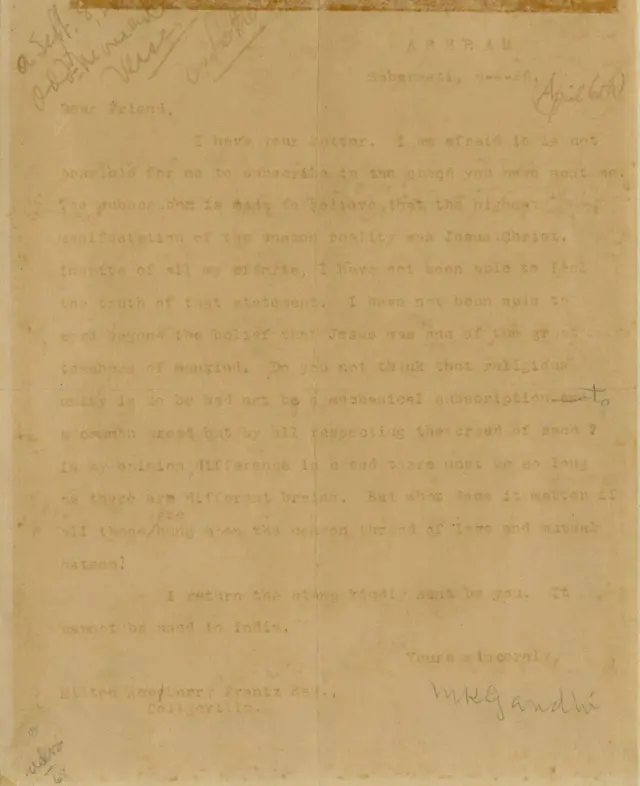 a Sept. 8,
ASHRAM
Sabarmati, 6-4-26.
April 6th
Dear Friend,
I have your letter. I am afraid it is not
possible for me to subscribe to the creed you have sent me.
The subscriber is made to believe that the highest
manifestation of the unseen reality was Jesus Christ.
Inspite of all my efforts, I have not been able to feel
the truth of that statement. I have not been able to
move beyond the belief that Jesus was one of the great
teachers of mankind. Do you not think that religious
unity is to be had not be a mechanical subscription to
a common creed but by all respecting the creed of each ?
In my opinion, difference in creed there must be so long
as there are different brains. But what does it matter if
all these/hung upon the common thread of love and mutual
are
esteem?
I return the stamp kindly sent be you. It
cannot be used in India.
Yours sincerely,
MKGandhi
Milton Newberry Frantz Esq.,
Collgeville.